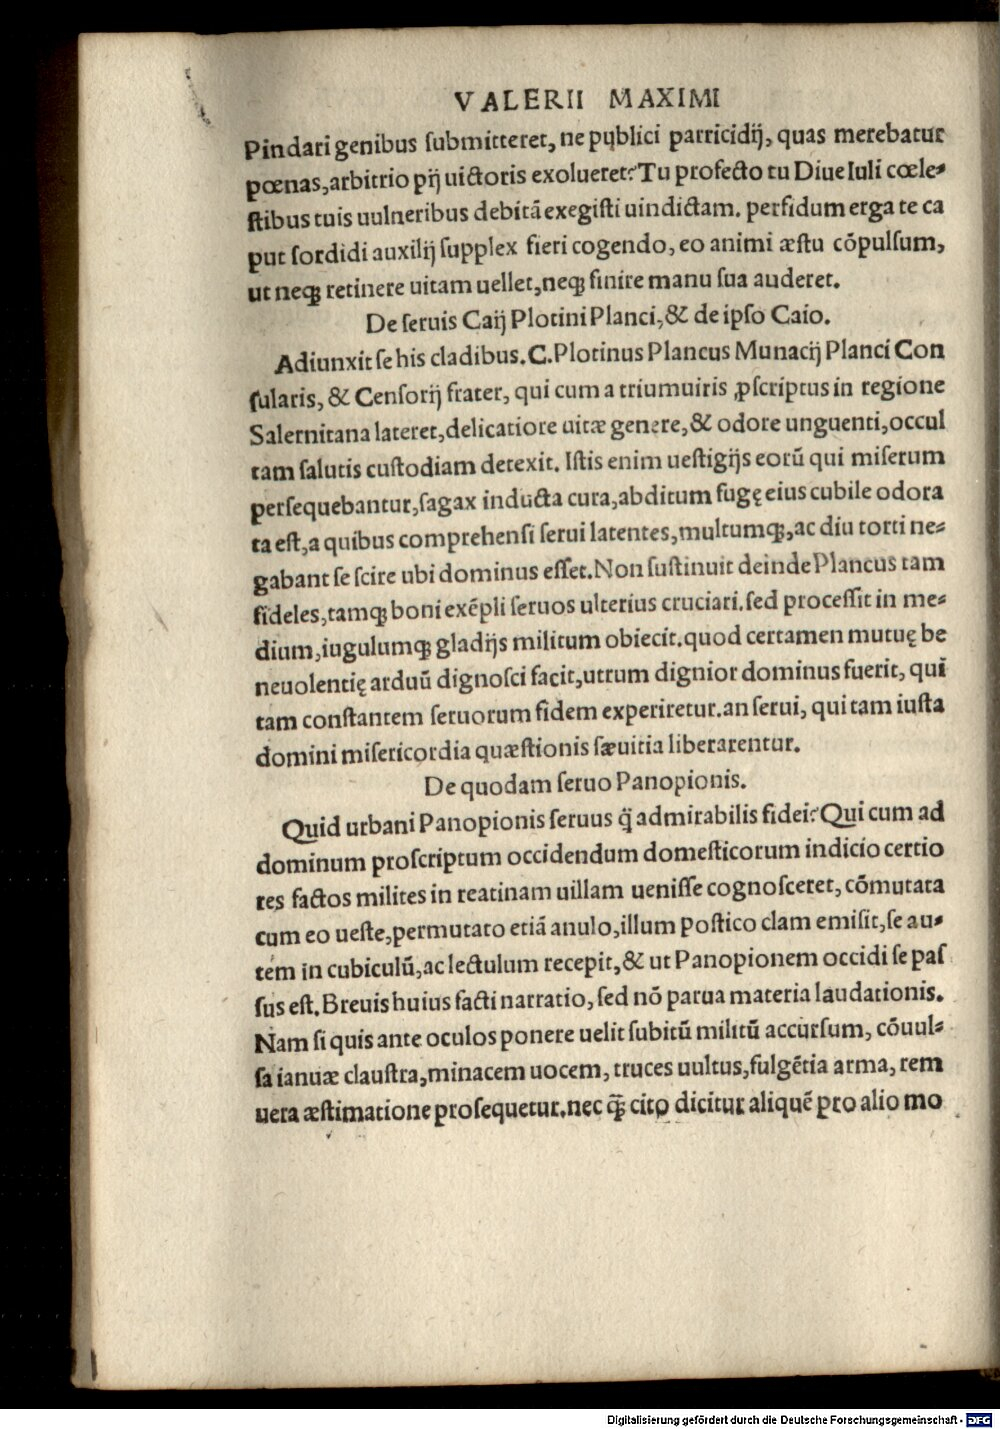 VALERII MAXIMI
Pindari genibus ſubmitteret, ne publici parricidij, quas merebatur
pœnas, arbitrio pij uictoris exolueret? Tu profecto tu Diue Iuli cœle-
ſtibus tuis uulneribus debitā exegiſti uindictam. perfidum erga te ca
put ſordidi auxilij ſupplex fieri cogendo, eo animi æſtu cōpulſum,
ut neqꝫ retinere uitam uellet, neqꝫ finire manu ſua auderet.
De ſeruis Caij Plotini Planci, & de ipſo Caio.
Adiunxit ſe his cladibus. C. Plotinus Plancus Munacij Planci Con
ſularis, & Cenſorij frater, qui cum a triumuiris ꝓſcriptus in regione
Salernitana lateret, delicatiore uitæ genere, & odore unguenti, occul
tam ſalutis cuſtodiam detexit. Iſtis enim ueſtigijs eorū qui miſerum
perſequebantur, ſagax inducta cura, abditum fugę eius cubile odora
ta eſt, a quibus comprehenſi ſerui latentes, multumqꝫ, ac diu torti ne-
gabant ſe ſcire ubi dominus eſſet. Non ſuſtinuit deinde Plancus tam
fideles, tamqꝫ boni exēpli ſeruos ulterius cruciari. ſed proceſſit in me-
dium, iugulumqꝫ gladijs militum obiecit. quod certamen mutuę be
neuolentię arduū dignoſci facit, utrum dignior dominus fuerit, qui
tam conſtantem ſeruorum fidem experiretur. an ſerui, qui tam iuſta
domini miſericordia quæſtionis ſæuitia liberarentur.
De quodam ſeruo Panopionis.
Quid urbani Panopionis ſeruus q̄ admirabilis fidei? Qui cum ad
dominum proſcriptum occidendum domeſticorum indicio certio
res factos milites in reatinam uillam ueniſſe cognoſceret, cōmutata
cum eo ueſte, permutato etiā anulo, illum poſtico clam emiſit, ſe au-
tem in cubiculū, ac lectulum recepit, & ut Panopionem occidi ſe paſ
ſus eſt. Breuis huius facti narratio, ſed nō parua materia laudationis.
Nam ſi quis ante oculos ponere uelit ſubitū militū accurſum, cōuul-
ſa ianuæ clauſtra, minacem uocem, truces uultus, fulgētia arma, rem
uera æſtimatione proſequetur. nec q̄ꝫ cito dicitur aliquē pro alio mo
Digitalisierung gefördert durch die Deutsche Forschungsgemeinschaft - DFG